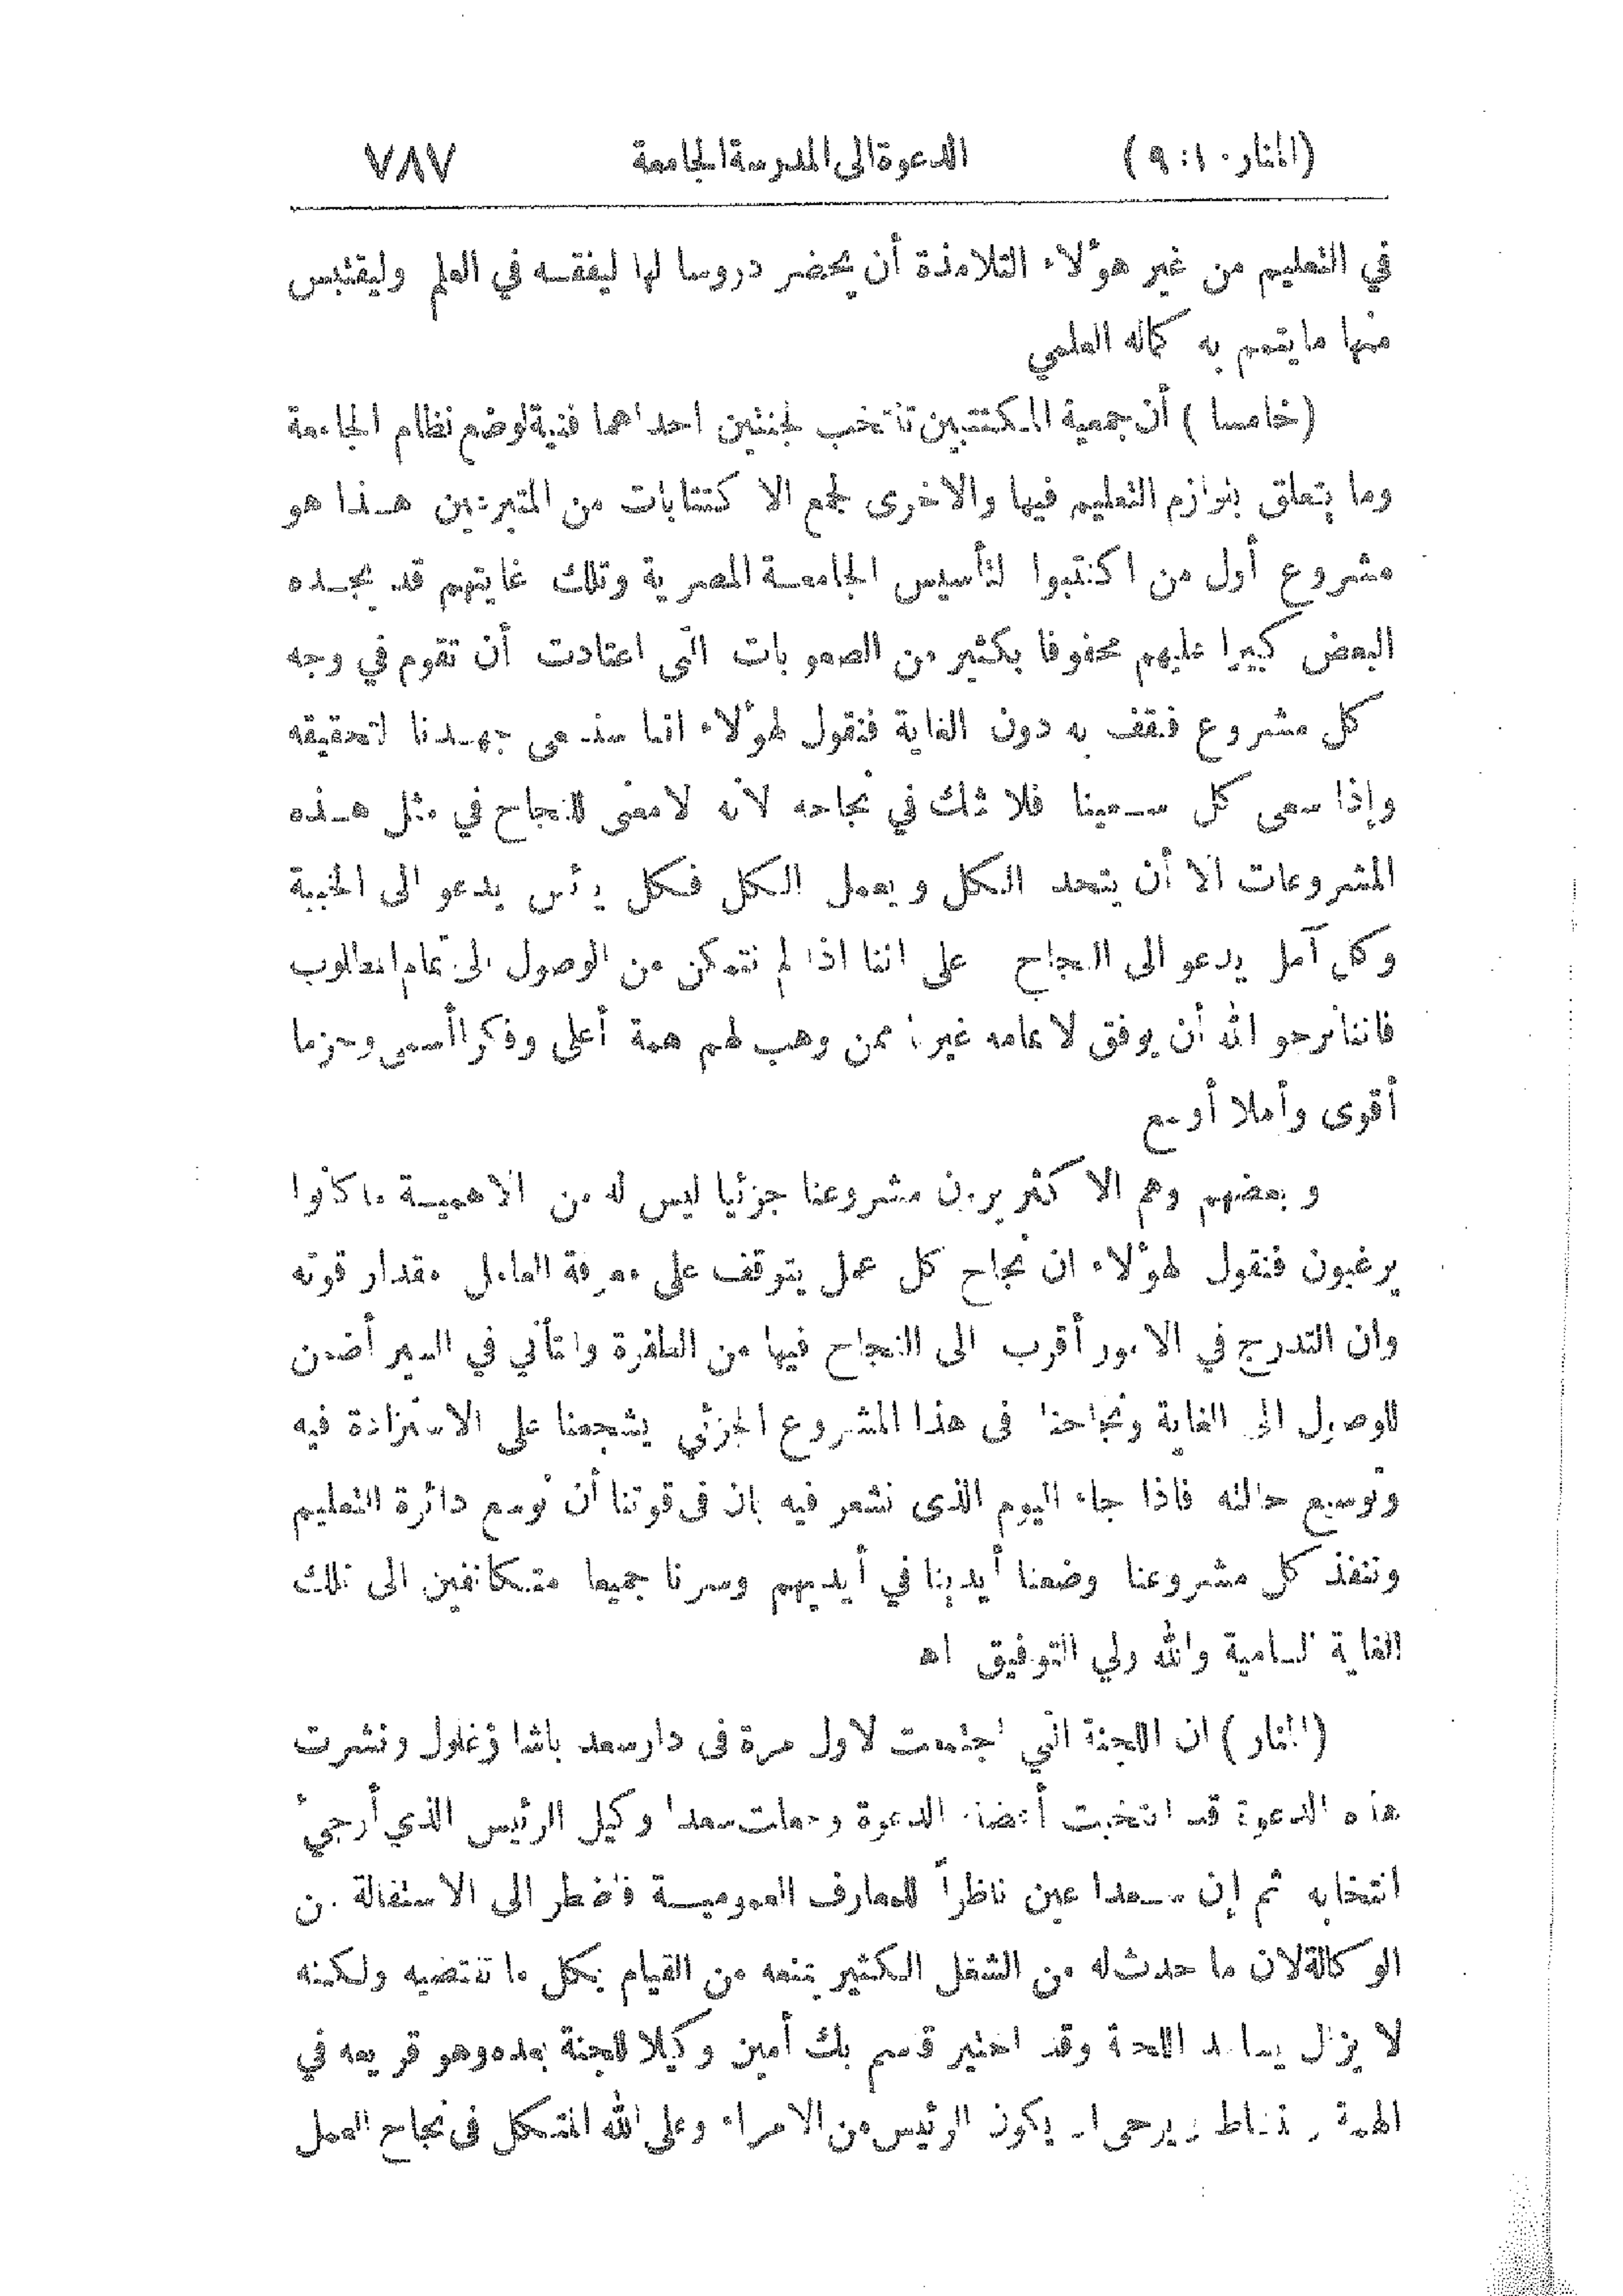 (المنار ١٠: ٩) الدعوة الى المدرسة الجامعة ٧٨٧
في التعليم من غير هؤلاء التلامذة أن يحضر دروسا لها ليفقه في العلم وليقتبس
منها ما يتمم به كماله العلمي
(خامسا) أن جمعية المكتتبين تنتخب لجنتين احداهما فنية لوضع نظام الجامعة
وما يتعلق بلوازم التعليم فيها والاخرى لجمع الاكتتابات من المتبرعين هذا هو
مشروع أول من اكتتبوا لتأسيس الجامعة المصرية وتلك غايتهم قد يجده
البعض كبيرا عليهم محفوفا بكثير من الصعوبات التى اعتادت أن تقوم في وجه
كل مشروع فتقف به دون الغاية فنقول لهؤلاء اننا سنسعى جهدنا لتحقيقه
وإذا سعى كل سعينا فلا شك في نجاحه لانه لا معنى للنجاح في مثل هذه
المشروعات الا أن يتحد الكل ويعمل الكل فكل يائس يدعو الى الخيبة
وكل آمل يدعو الى النجاح على اننا اذا لم نتمكن من الوصول الى تمام المطلوب
فاننا نرجو الله أن يوفق لاتمامه غيرنا ممن وهب لهم همة أعلى وفكرا أسمى وحزما
أقوى وأملا أوسع
وبعضهم وهم الاكثر يرون مشروعنا جزئيا ليس له من الاهمية ما كانوا
يرغبون فنقول لهؤلاء ان نجاح كل عمل يتوقف على معرفة العامل مقدار قوته
وان التدرج في الامور أقرب الى النجاح فيها من الطفرة والتأني في السير أضمن
للوصول الى الغاية ونجاحنا فى هذا المشروع الجزئي يشجعنا على الاستزادة فيه
وتوسيع حالته فاذا جاء اليوم الذى نشعر فيه بان فى قوتنا أن نوسع دائرة التعليم
وننفذ كل مشروعنا وضعنا أيدينا في أيديهم وسرنا جميعا متكاتفين الى تلك
الغاية السامية والله ولي التوفيق اهـ
(المنار) ان اللجنة التي اجتمعت لاول مرة فى دار سعد باشا زغلول ونشرت
هذه الدعوة قد انتخبت أعضاء الدعوة وجعلت سعدا وكيل الرئيس الذي أرجئ
انتخابه ثم إن سعدا عين ناظراً للمعارف العمومية فاضطر الى الاستقالة من
الوكالة لان ما حدث له من الشغل الكثير يمنعه من القيام بكل ما تقتضيه ولكنه
لا يزال يساعد اللجنة وقد اختير قاسم بك أمين وكيلا للجنة بعده وهو قريعه في
الهمة يكون الرئيس من الامراء وعلى الله المتكل فى نجاح العمل